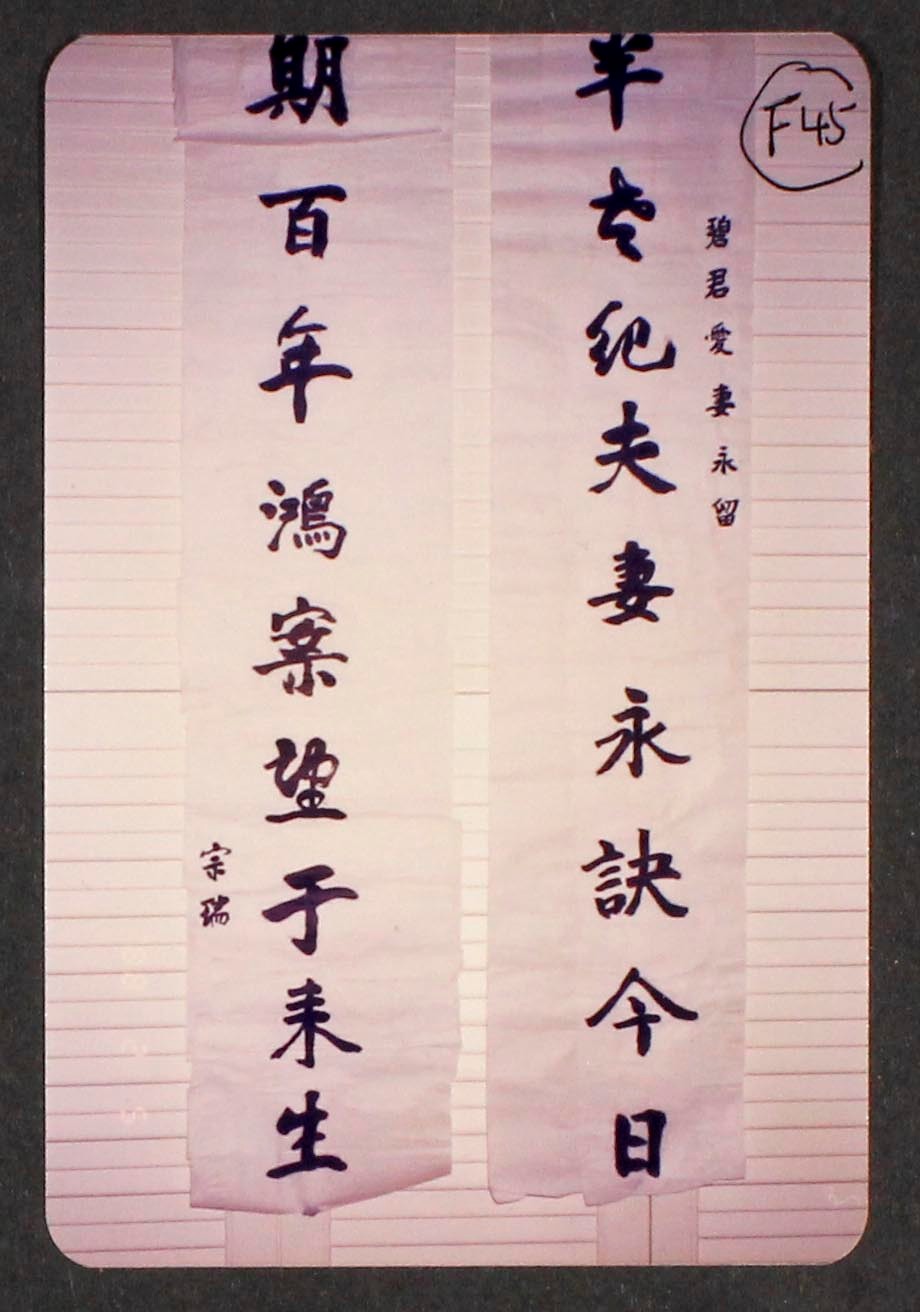 F45
碧君愛妻永留
半世紀夫妻永訣今日
期百年鴻案望于来生
宗瑞